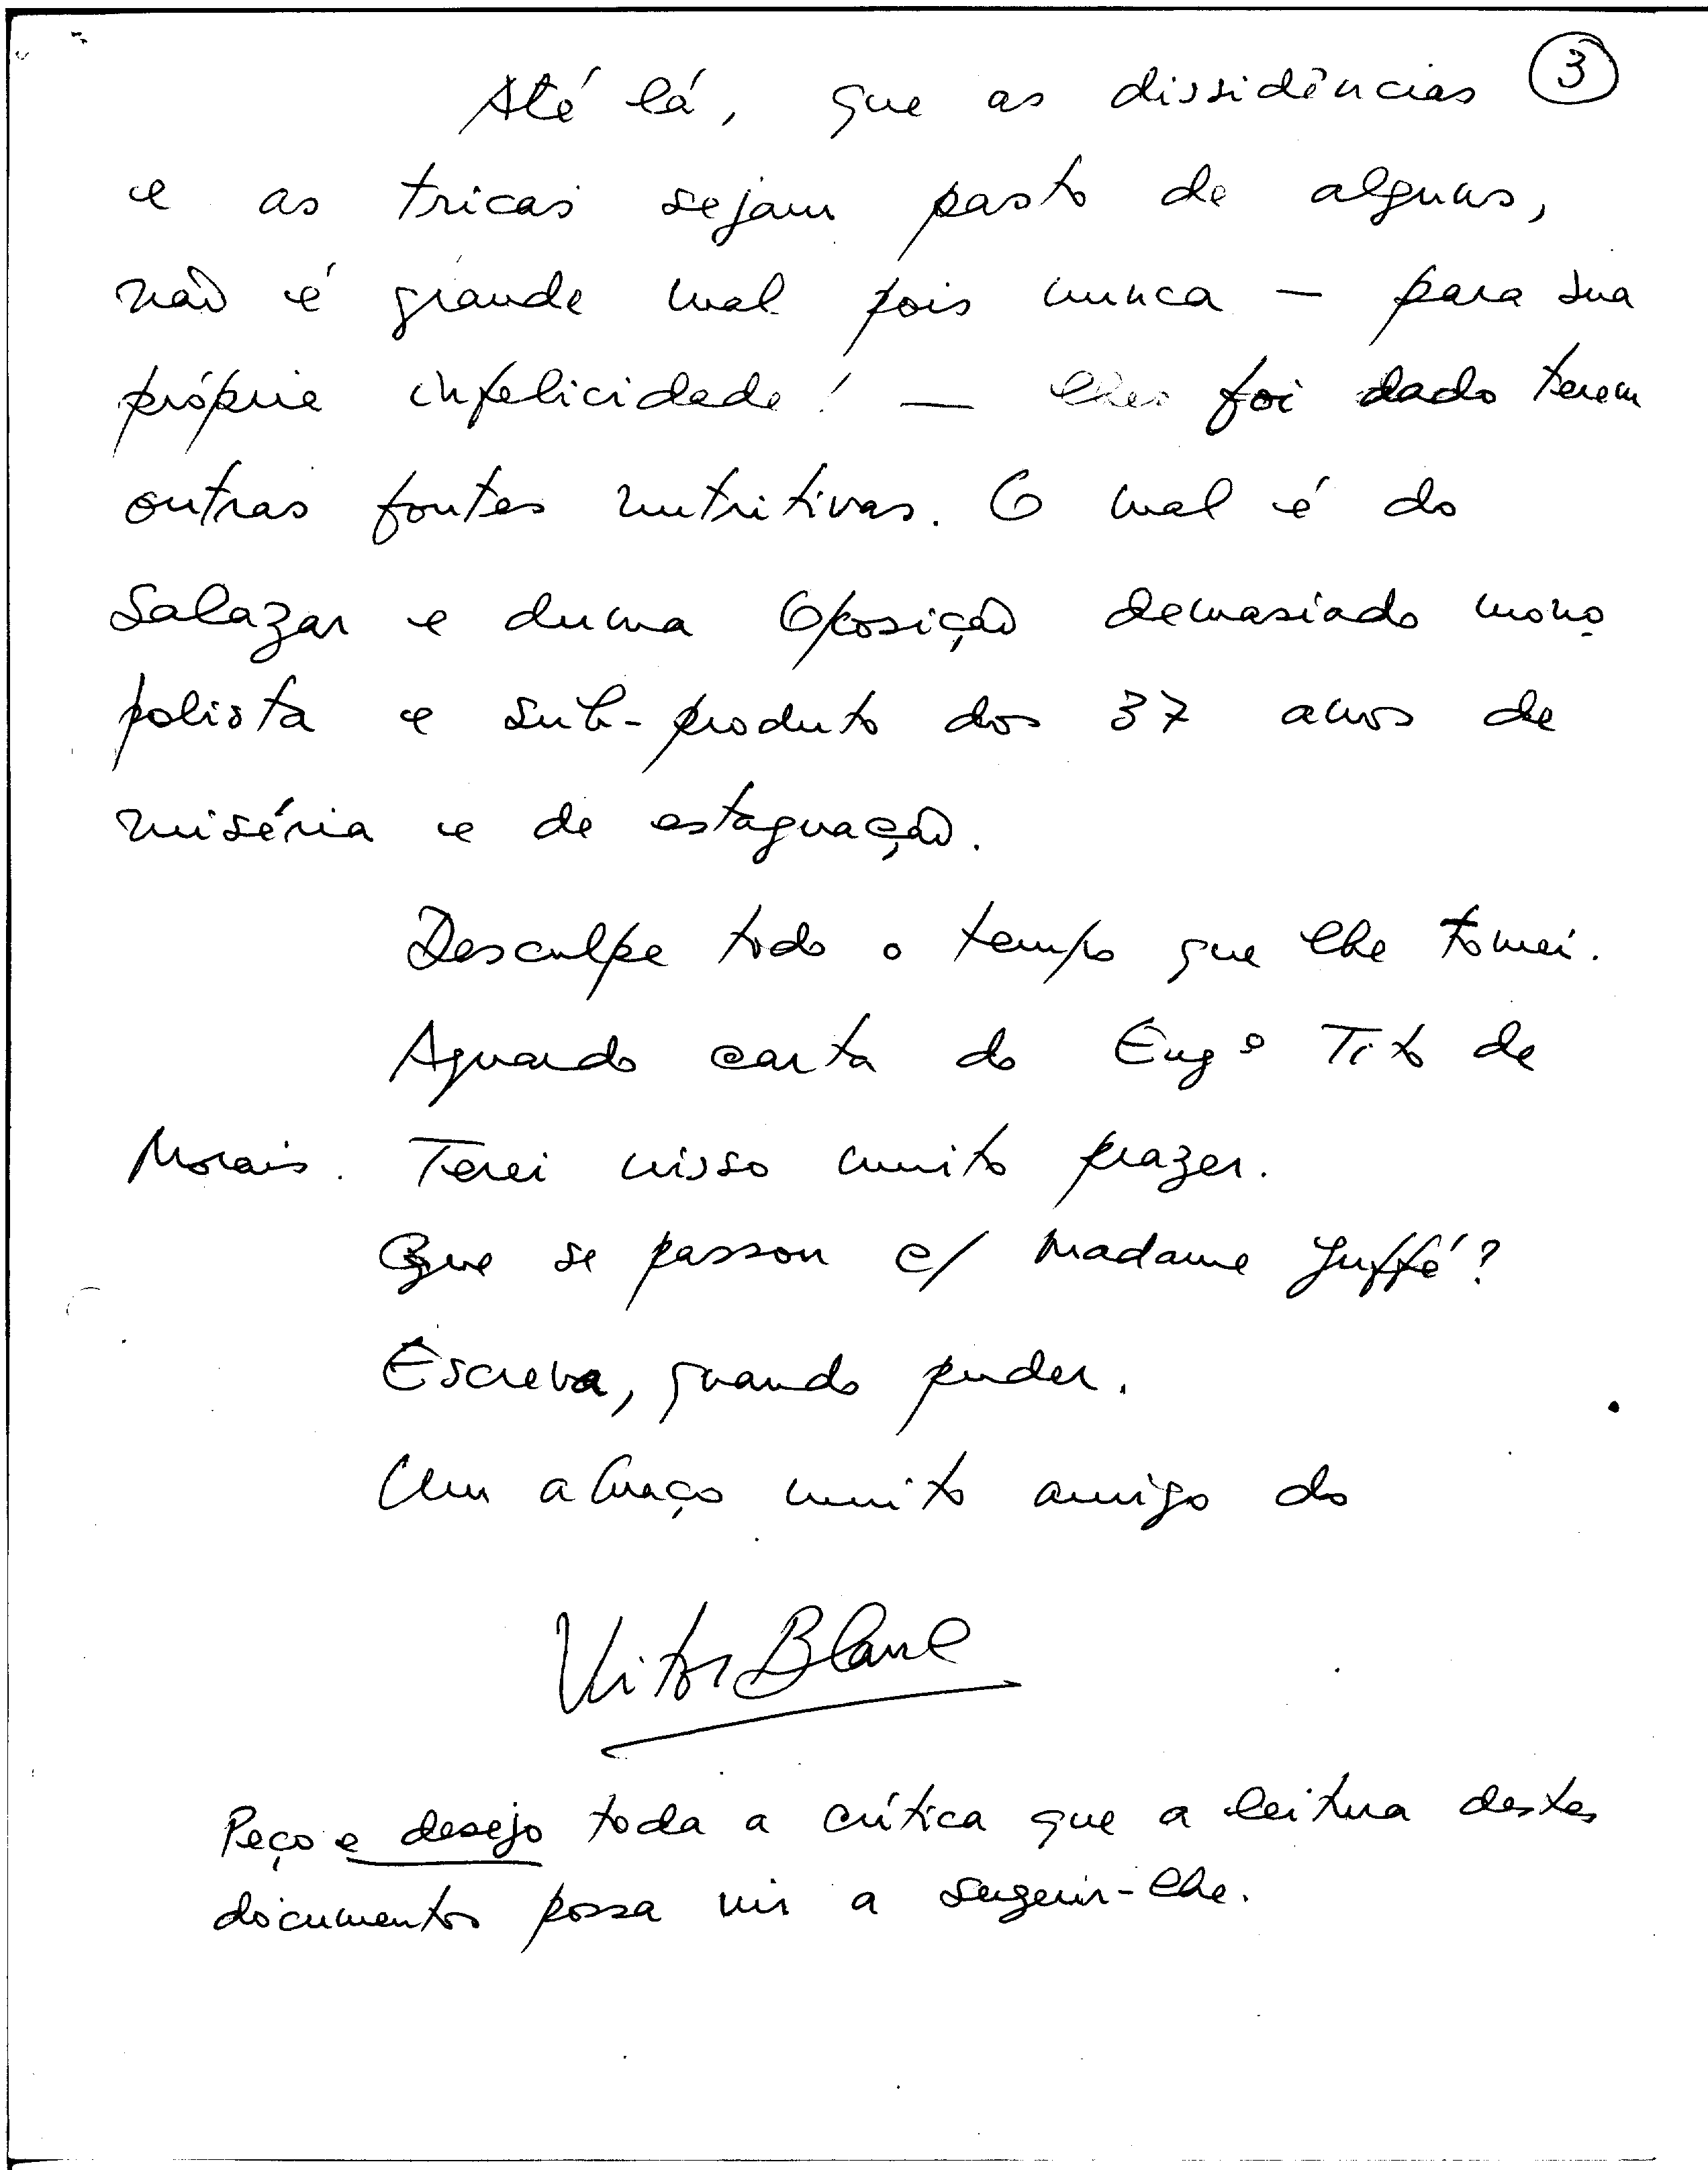 3
Até lá, que as dissidências
e as tricas sejam pasto de alguns,
não é grande mal pois nunca — para sua
própria infelicidade! — lhes foi dado terem
outras fontes nutritivas. O mal é do
Salazar e duma Oposição demasiado mono
polista e sub-produto dos 37 anos de
miséria e de estagnação.
Desculpe todo o tempo que lhe tomei.
Aguardo carta do Engº Tito de
Morais. Terei nisso muito prazer.
Que se passou c/ Madame Juffé?
Escreva, quando puder.
Um abraço muito amigo do
Vitor
Peço e desejo toda a crítica que a leitura destes
documentos possa vir a sugerir-lhe.